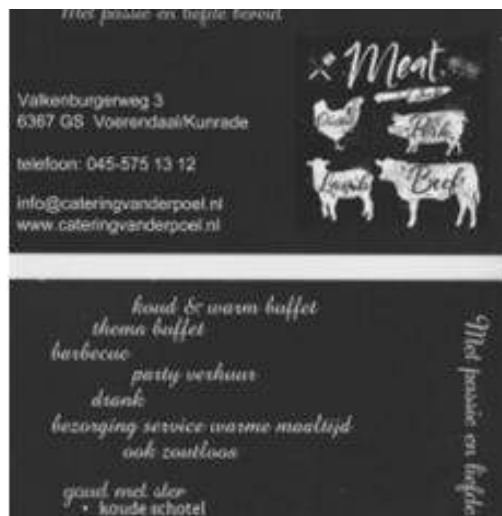 Met passie en liefde bereid
Valkenburgerweg 3
6367 GS Voerendaal/Kunrade
telefoon: 045-575 13 12
info@cateringvanderpoel.nl
www.cateringvanderpoel.nl
Meat
Pork
Lamb
Beef
koud & warm buffet
thema buffet
barbecue
party verhuur
drank
bezorging service warme maaltijd
ook zoutloos
goud met ster
• koude schotel
Met passie en liefde